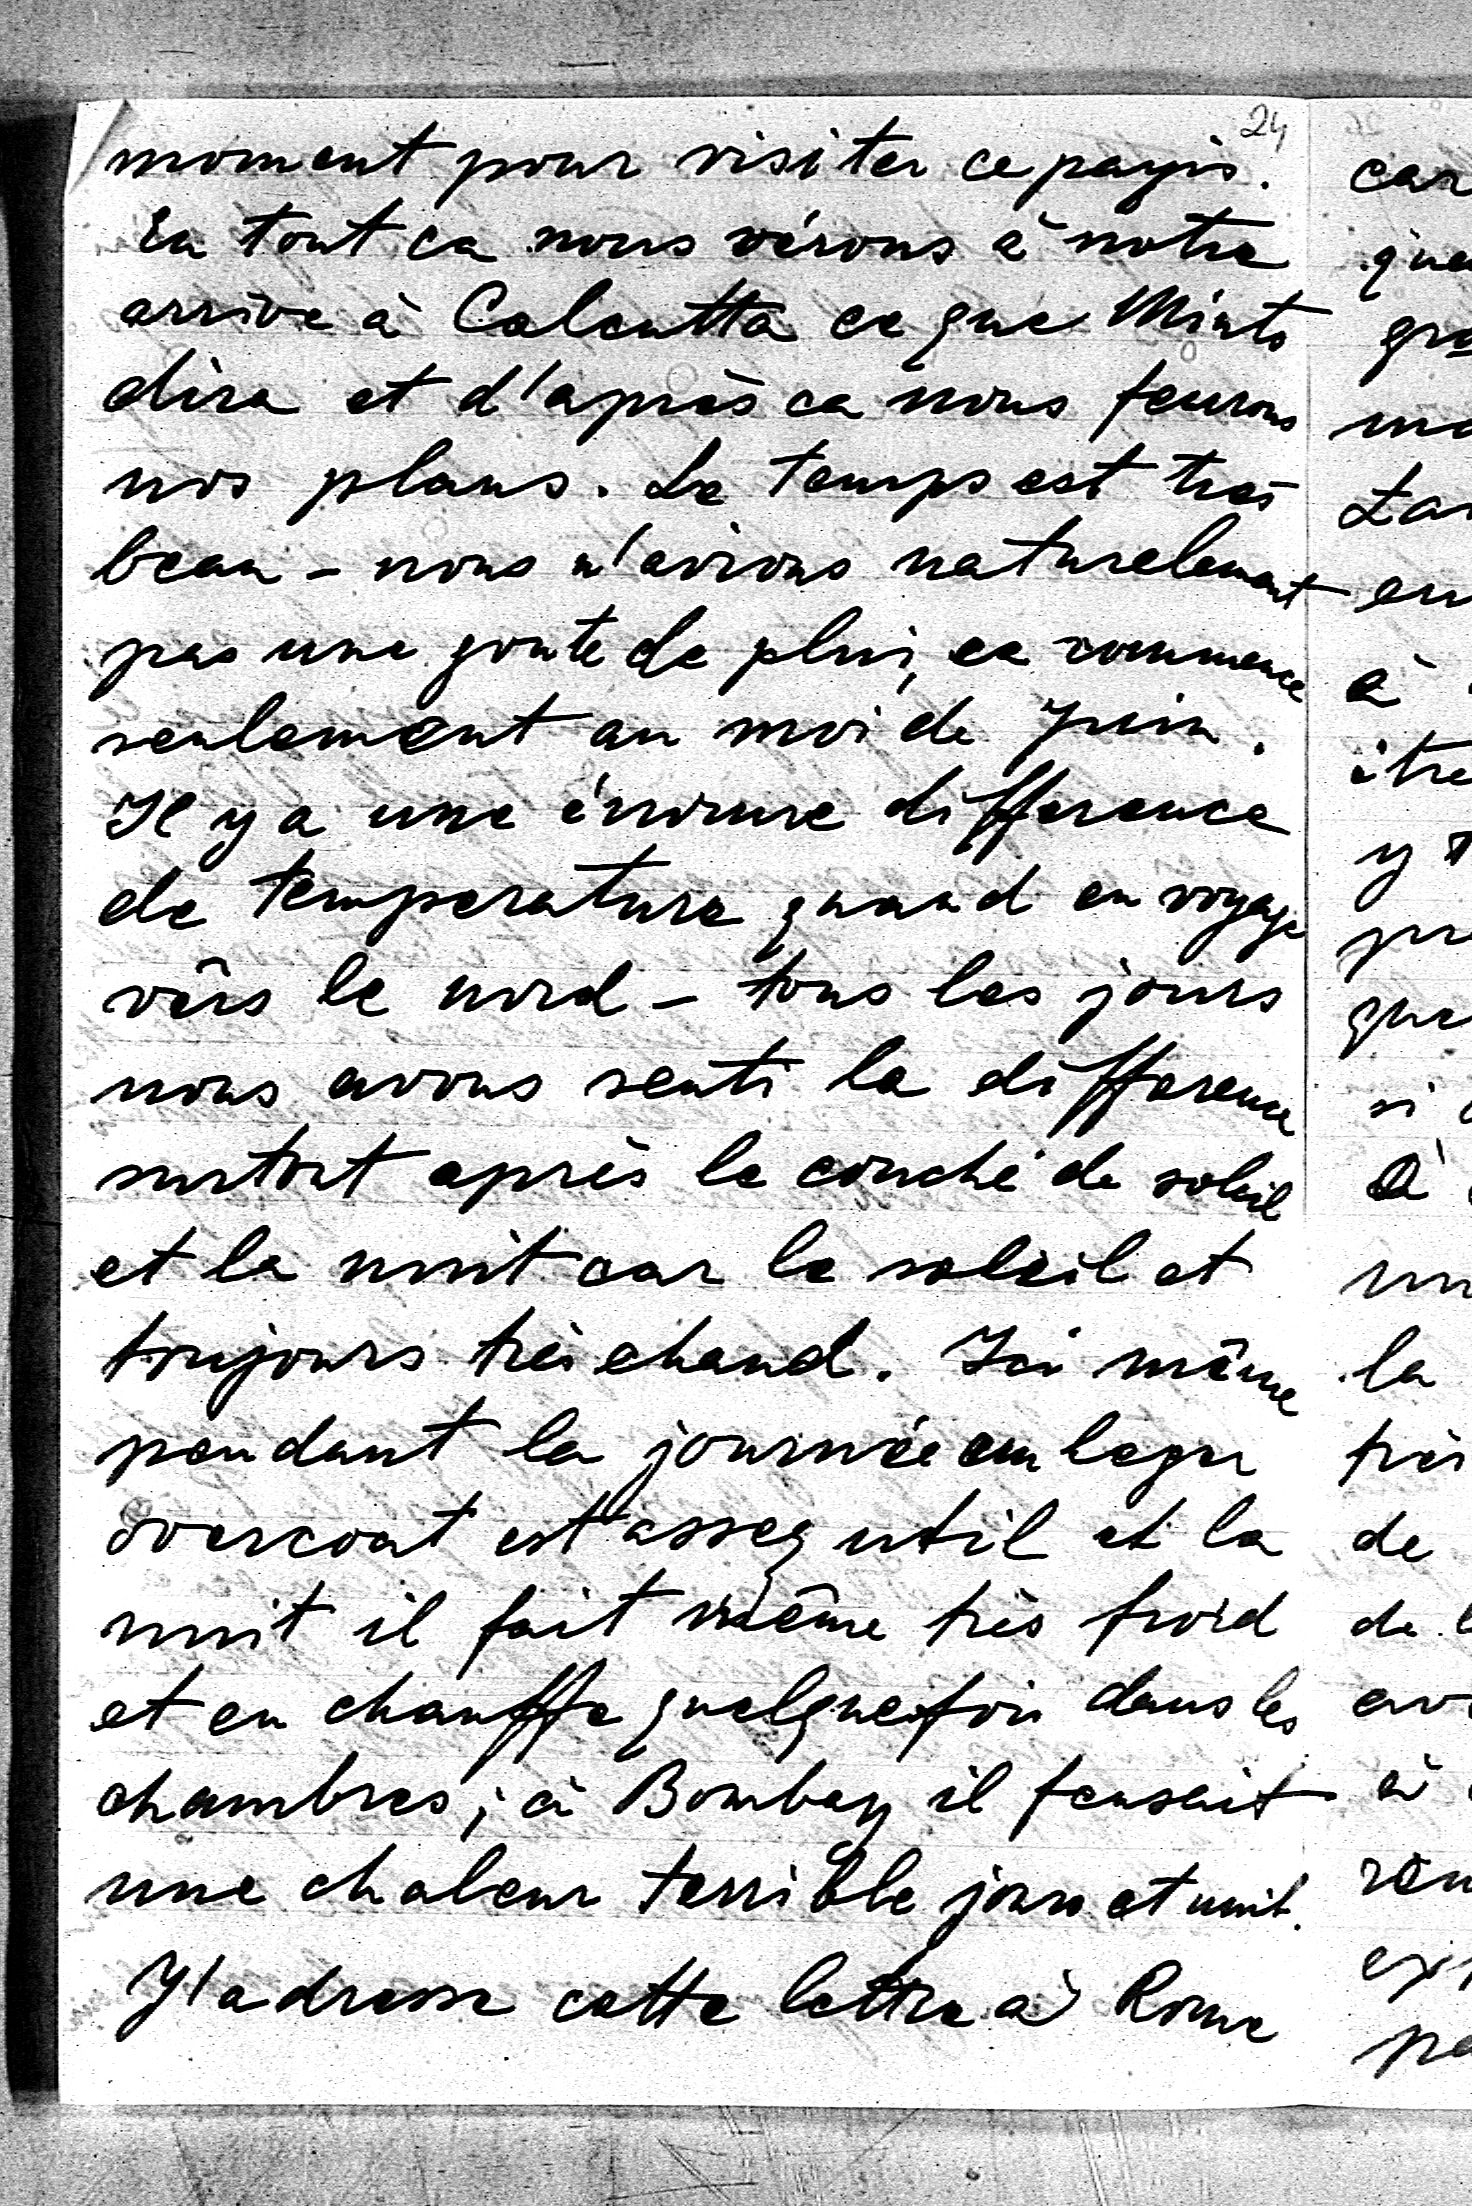 24
moment pour visiter ce payis.
En tout ca nous vérons à notre
arrive à Calcutta ce que Minto
dira et d'après ca nous feurons
nos plans. Le temps est très
beau - nous n'avons naturelement
pas une goute de plui, ce commence
seulement au moi de Juin.
Il y a une énorme difference
de temperature quand en voyage
vêrs le nord - tous les jours
nous avons senti la difference
surtout après le couché de soleil
et la nuit car le soleil et
toujours très chaud. Ici même
pendant la journée un leger
overcoat est assez util et la
nuit il fait même très froid
et en chauffe quelquefoi dans les
chambres; à Bombay il feusait
une chaleur terrible jour et nuit.
J'adresse cette lettre à Rome
car
que
gra
ma
La
en
à
itre
y
pre
que
si
à
un
la
très
de
de
avo
à
ren
exp
pa